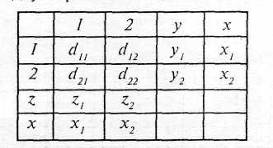 1 2 y x
1 d₁₁ d₁₂ y₁ x₁
2 d₂₁ d₂₂ y₂ x₂
z z₁ z₂
x x₁ x₂